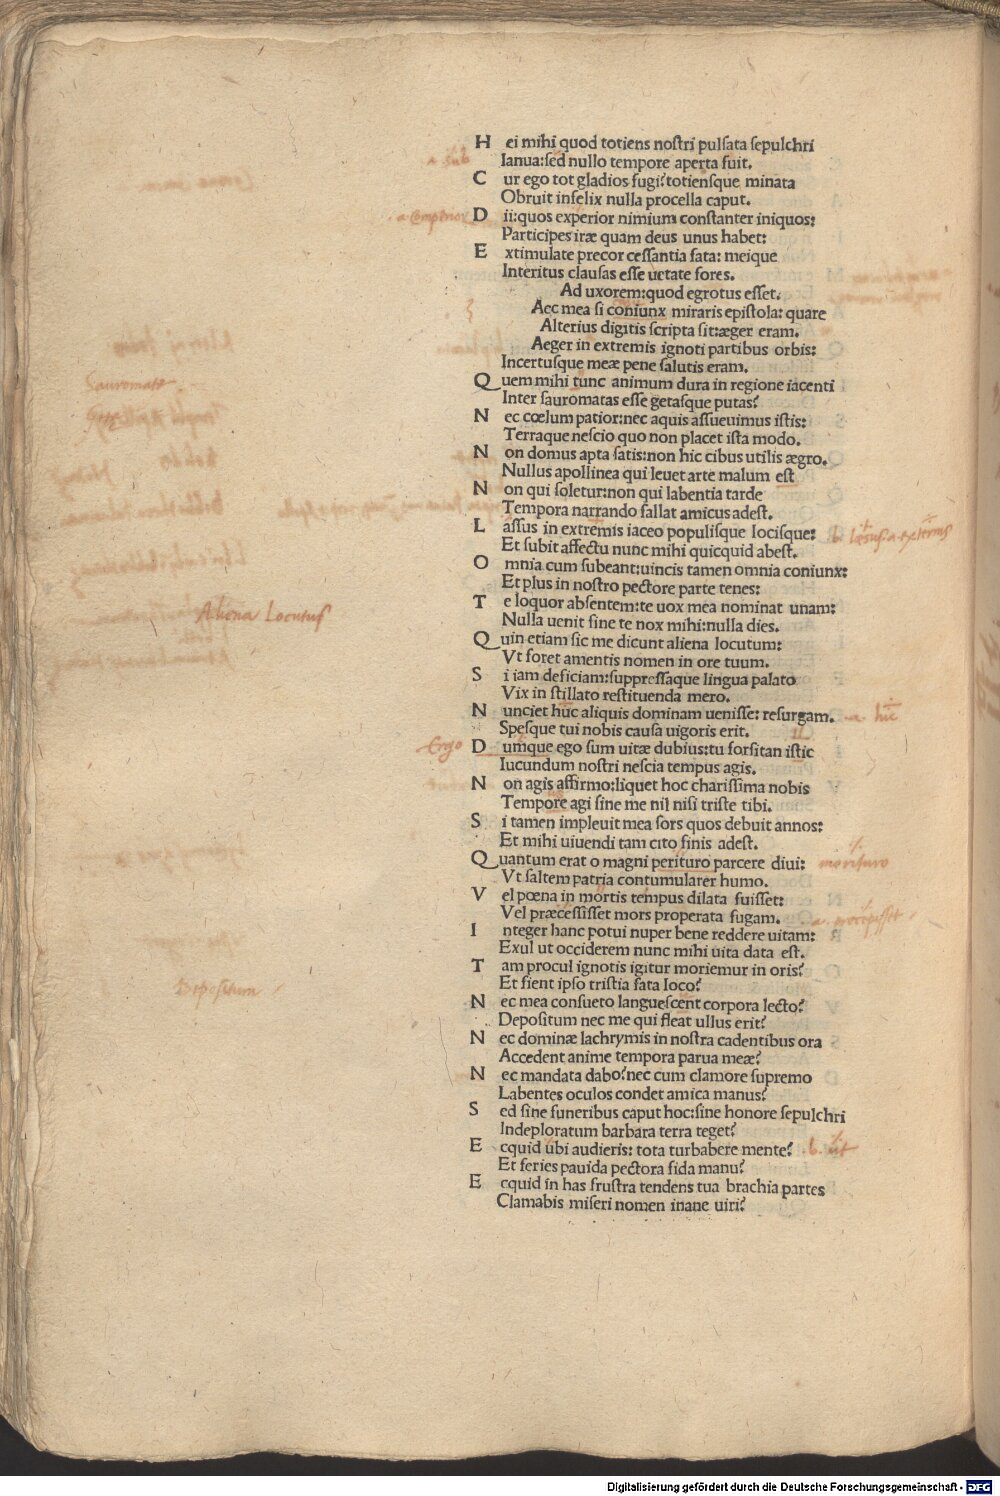 H ei mihi quod totiens nostri pulsata sepulchri
Ianua:sed nullo tempore aperta fuit.
C ur ego tot gladios fugi?totiensque minata
Obruit infelix nulla procella caput.
D ii:quos experior nimium constanter iniquos:
Participes iræ quam deus unus habet:
E xtimulate precor cessantia fata: meique
Interitus clausas esse uetate fores.
Ad uxorem:quod egrotus esset.
Aec mea si coniunx miraris epistola: quare
Alterius digitis scripta sit:æger eram.
Aeger in extremis ignoti partibus orbis:
Incertusque meæ pene salutis eram.
Sauromatæ
Q uem mihi tunc animum dura in regione iacenti
Inter sauromatas esse getasque putas?
Getæ
N ec cœlum patior:nec aquis assueuimus istis:
Terraque nescio quo non placet ista modo.
N on domus apta satis:non hic cibus utilis ægro.
Nullus apollinea qui leuet arte malum est
N on qui soletur:non qui labentia tarde
Tempora narrando fallat amicus adest.
L assus in extremis iaceo populisque locisque: b. læsus a externis
Et subit affectu nunc mihi quicquid abest.
O mnia cum subeant:uincis tamen omnia coniunx:
Et plus in nostro pectore parte tenes:
T e loquor absentem:te uox mea nominat unam:
Aliena Locutus
Nulla uenit sine te nox mihi:nulla dies.
Q uin etiam sic me dicunt aliena locutum:
Vt foret amentis nomen in ore tuum.
S i iam deficiam:suppressaque lingua palato
Vix in stillato restituenda mero.
N unciet huc aliquis dominam uenisse: resurgam. a. hic
Spesque tui nobis causa uigoris erit.
Ergo D umque ego sum uitæ dubius:tu forsitan istic
Iucundum nostri nescia tempus agis.
N on agis affirmo:liquet hoc charissima nobis
Tempore agi sine me nil nisi triste tibi.
S i tamen impleuit mea sors quos debuit annos:
Et mihi uiuendi tam cito finis adest.
Q uantum erat o magni perituro parcere diui: morituro
Vt saltem patria contumularer humo.
V el pœna in mortis tempus dilata fuisset:
Vel præcessisset mors properata fugam. a. precepisset
I nteger hanc potui nuper bene reddere uitam:
Exul ut occiderem nunc mihi uita data est.
T am procul ignotis igitur moriemur in oris?
Et fient ipso tristia fata loco?
Depositum
N ec mea consueto languescent corpora lecto?
Depositum nec me qui fleat ullus erit?
N ec dominæ lachrymis in nostra cadentibus ora
Accedent anime tempora parua meæ?
N ec mandata dabo?nec cum clamore supremo
Labentes oculos condet amica manus?
S ed sine funeribus caput hoc:sine honore sepulchri
Indeploratum barbara terra teget?
E cquid ubi audieris: tota turbabere mente? b. ut
Et feries pauida pectora fida manu?
E cquid in has frustra tendens tua brachia partes
Clamabis miseri nomen inane uiri?
Digitalisierung gefördert durch die Deutsche Forschungsgemeinschaft - DFG